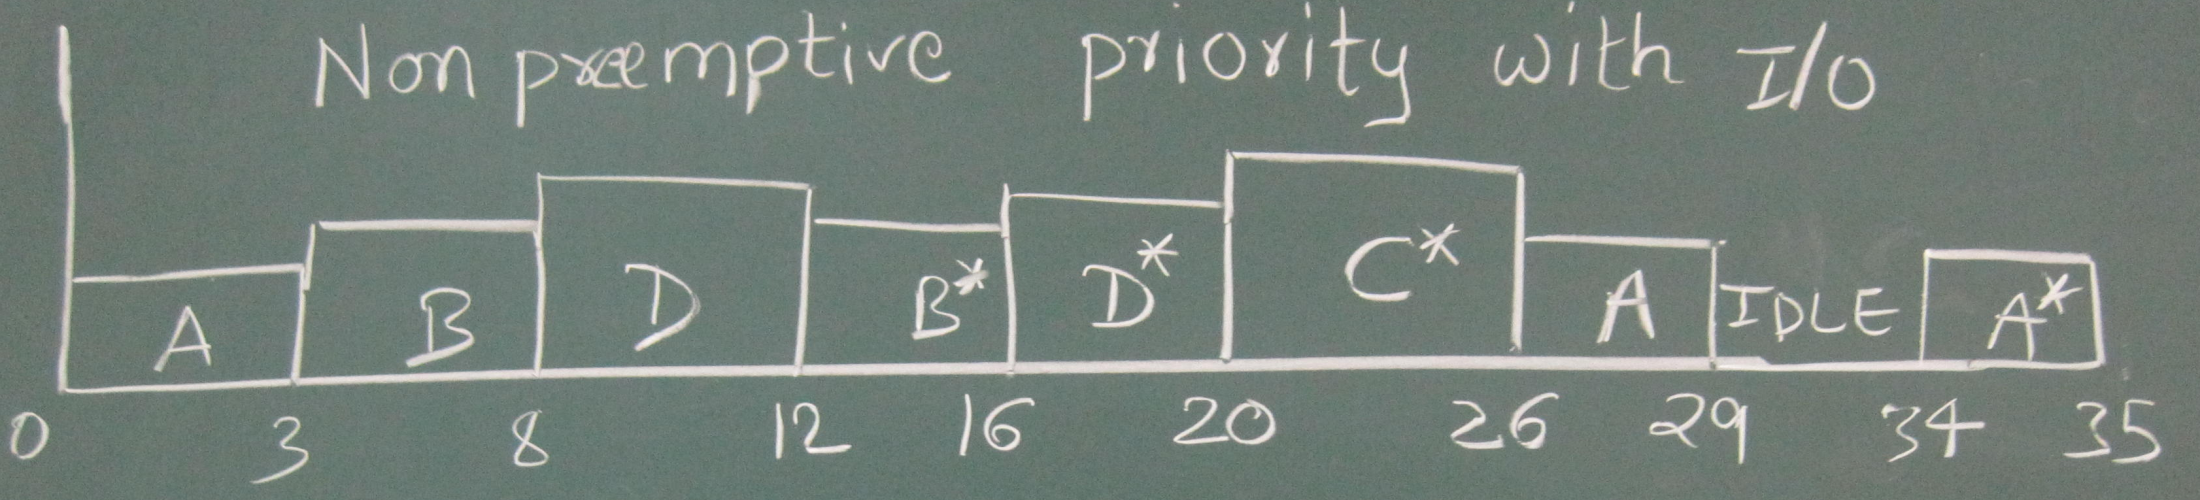 Non preemptive priority with I/O
A B D B* D* C* A IDLE A*
0 3 8 12 16 20 26 29 34 35